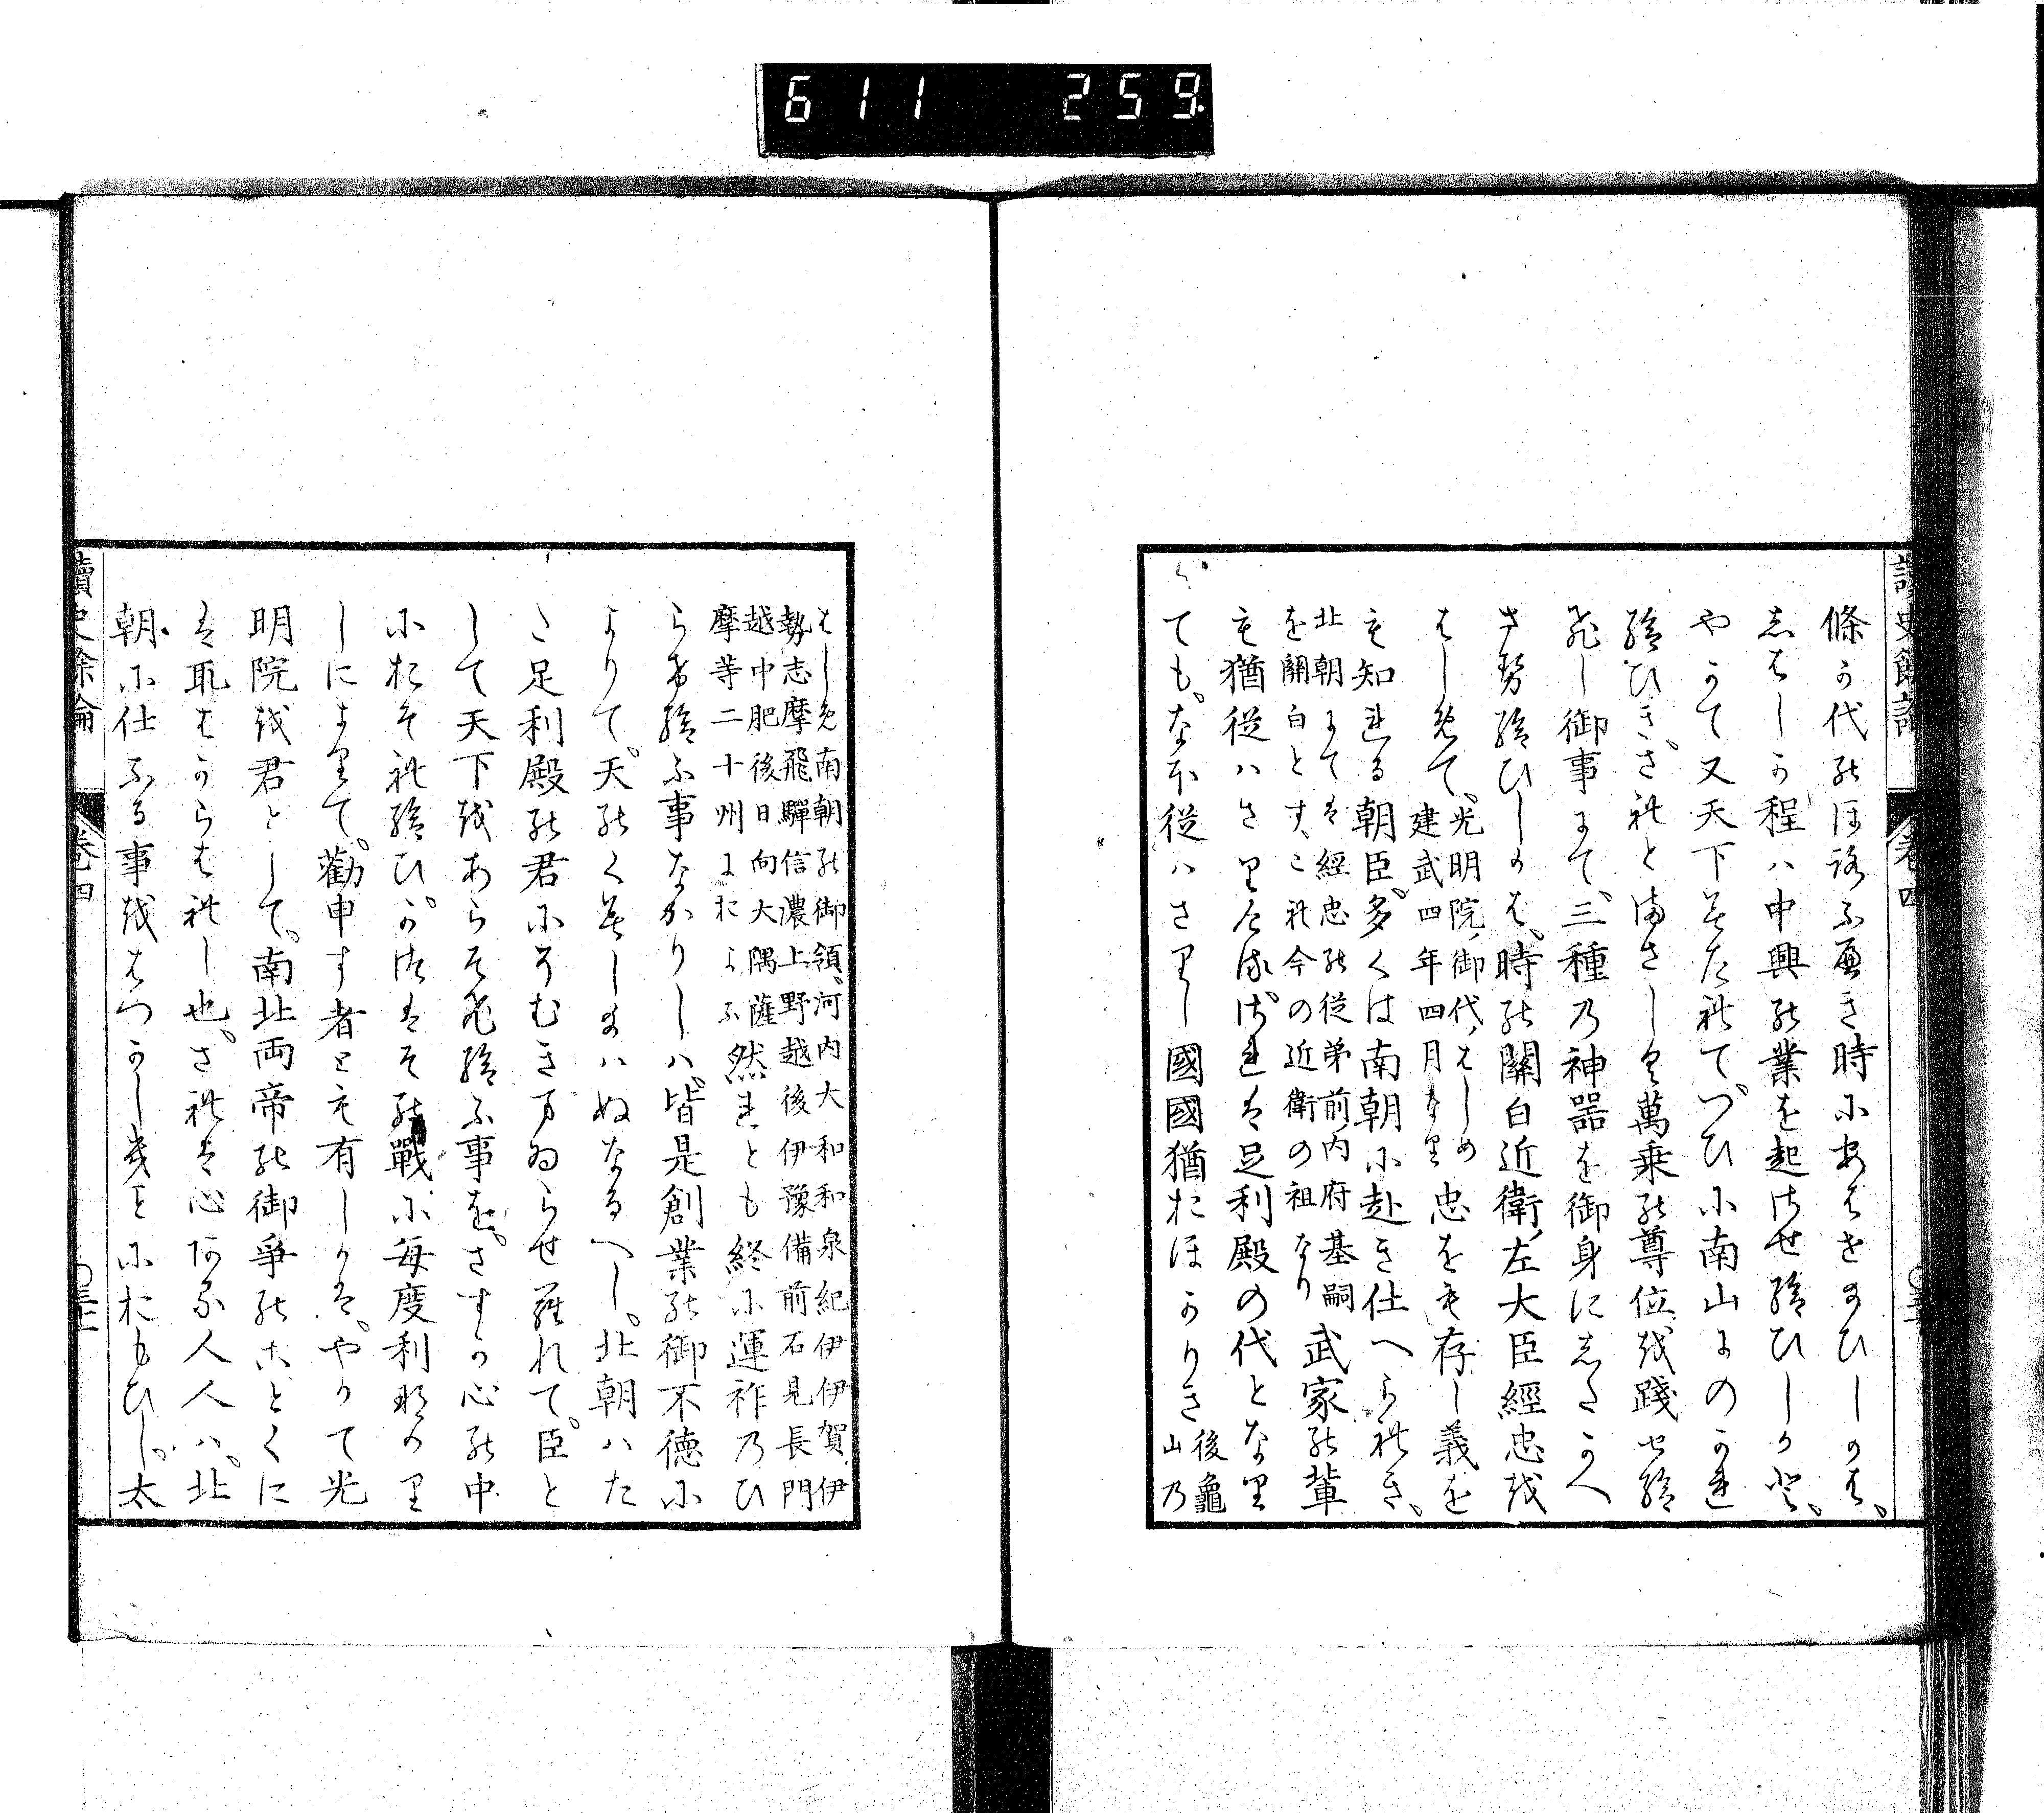 611 259
讀史餘論 卷四
條の代のほろふへき時にあはせ給ひしかは、
しはしか程ハ中興の業を起させ給ひしかど、
やかて又天下みたれて、つひに南山にのかれ
給ひき、されとまさしく萬乗の尊位を踐せ給
ひし御事にて、三種乃神器を御身にしたかへ
させ給ひしかは、時の關白近衛左大臣經忠を
はしめて、光明院御代ノはしめ
建武四年四月なり
忠をも存し義を
も知れる朝臣、多くは南朝に赴き仕へられき、
北朝にては經忠の従弟前内府基嗣
を關白とす、これ今の近衛の祖なり
武家の輩
も猶従ハさりしなり
足利殿の代となり
ても、なほ従ハさりし國國猶おほかりき
後龜
山乃
はしめ南朝の御領、河内大和和泉紀伊伊賀伊
勢志摩飛驒信濃上野越後伊豫備前石見長門
越中肥後日向大隅薩
摩等二十州におよふ
然れとも終に運祚乃ひ
らけ給ふ事なかりしハ、皆是創業の御不徳に
よりて、天のくみしたまハぬなるへし、北朝ハた
た足利殿の君にそむきまゐらせられて、臣と
して天下をあらそひ給ふ事を、さすか心の中
におそれ給ひ、かつはその戰に毎度利なかり
しによりて、勸申す者とも有しかは、やかて光
明院を君として、南北両帝の御爭のことくに
は取はからはれし也、されは心ある人人ハ、北
朝に仕ふる事をはつかしきことにおもひし、太
讀史餘論 卷四